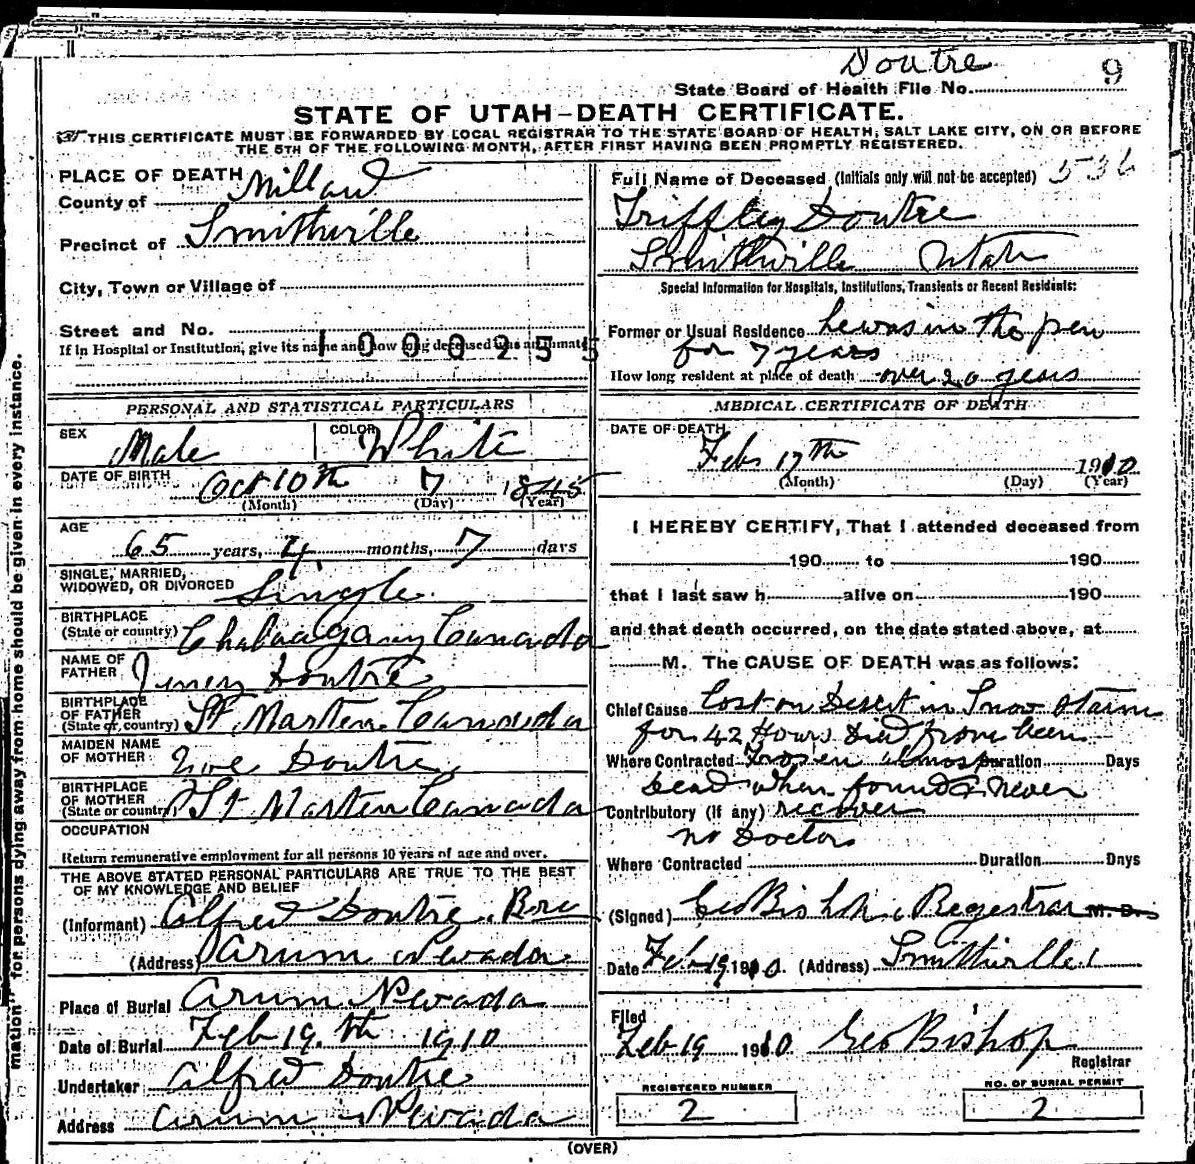 Doutre 9
State Board of Health File No.
STATE OF UTAH-DEATH CERTIFICATE.
THIS CERTIFICATE MUST BE FORWARDED BY LOCAL REGISTRAR TO THE STATE BOARD OF HEALTH, SALT LAKE CITY, ON OR BEFORE
THE 5TH OF THE FOLLOWING MONTH, AFTER FIRST HAVING BEEN PROMPTLY REGISTERED.
PLACE OF DEATH
County of Millard
Precinct of Smithville
City, Town or Village of
Street and No.
If in Hospital or Institution, give its name and how long deceased was an inmate
1000255
PERSONAL AND STATISTICAL PARTICULARS
SEX Male COLOR White
DATE OF BIRTH Oct 10th 7 1845
(Month) (Day) (Year)
AGE
65 years, 4 months, 7 days
SINGLE, MARRIED,
WIDOWED, OR DIVORCED Single
BIRTHPLACE
(State or country) Canada
NAME OF
FATHER Doutre
BIRTHPLACE
OF FATHER
(State or country) St. Marten Cannada
MAIDEN NAME
OF MOTHER Doutre
BIRTHPLACE
OF MOTHER
(State or country) St. Marten Canada
OCCUPATION
Return remunerative employment for all persons 10 years of age and over.
THE ABOVE STATED PERSONAL PARTICULARS ARE TRUE TO THE BEST
OF MY KNOWLEDGE AND BELIEF
(Informant) Alfred Doutre
(Address) Arum Nevada
Place of Burial Arum Nevada
Date of Burial Feb 19th 1910
Undertaker Alfred Doutre
Address Arum Nevada
Full Name of Deceased (Initials only will not be accepted) 536
Triffley Doutre
Smithville Utah
Special Information for Hospitals, Institutions, Transients or Recent Residents:
Former or Usual Residence he was in the pen
for 7 years
How long resident at place of death over 20 years
MEDICAL CERTIFICATE OF DEATH
DATE OF DEATH
Feb 17th 1910
(Month) (Day) (Year)
I HEREBY CERTIFY, That I attended deceased from
190 to 190
that I last saw h alive on 190
and that death occurred, on the date stated above, at
M. The CAUSE OF DEATH was as follows:
Chief Cause Lost on Desert in Snow Storm
for 42 Hours Died from been
Where Contracted Frozen almost Duration Days
Dead when found & Never
Contributory (if any) recover
no Doctor
Where Contracted Duration Days
(Signed) Geo Bishop Regestrar M. D.
Date Feb 19 1910. (Address) Smithville
Filed
Feb 19 1910 Geo Bishop
Registrar
REGISTERED NUMBER
2
NO. OF BURIAL PERMIT
2
(OVER)
mation" for persons dying away from home should be given in every instance.